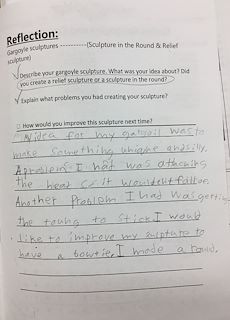 Reflection:
Gargoyle sculptures ----------(Sculpture in the Round & Relief
sculpture)
Describe your gargoyle sculpture. What was your idea about? Did
you create a relief sculpture or a sculpture in the round?
Explain what problems you had creating your sculpture?
How would you improve this sculpture next time?
My idea for my gargoil was to
make something unique and silly.
A problem I had was attaching
the head so it wouldent fall off.
Another Problem I had was getting
the toung to stick I would
like to improve my sulpture to
have a bowtie. I made a round.